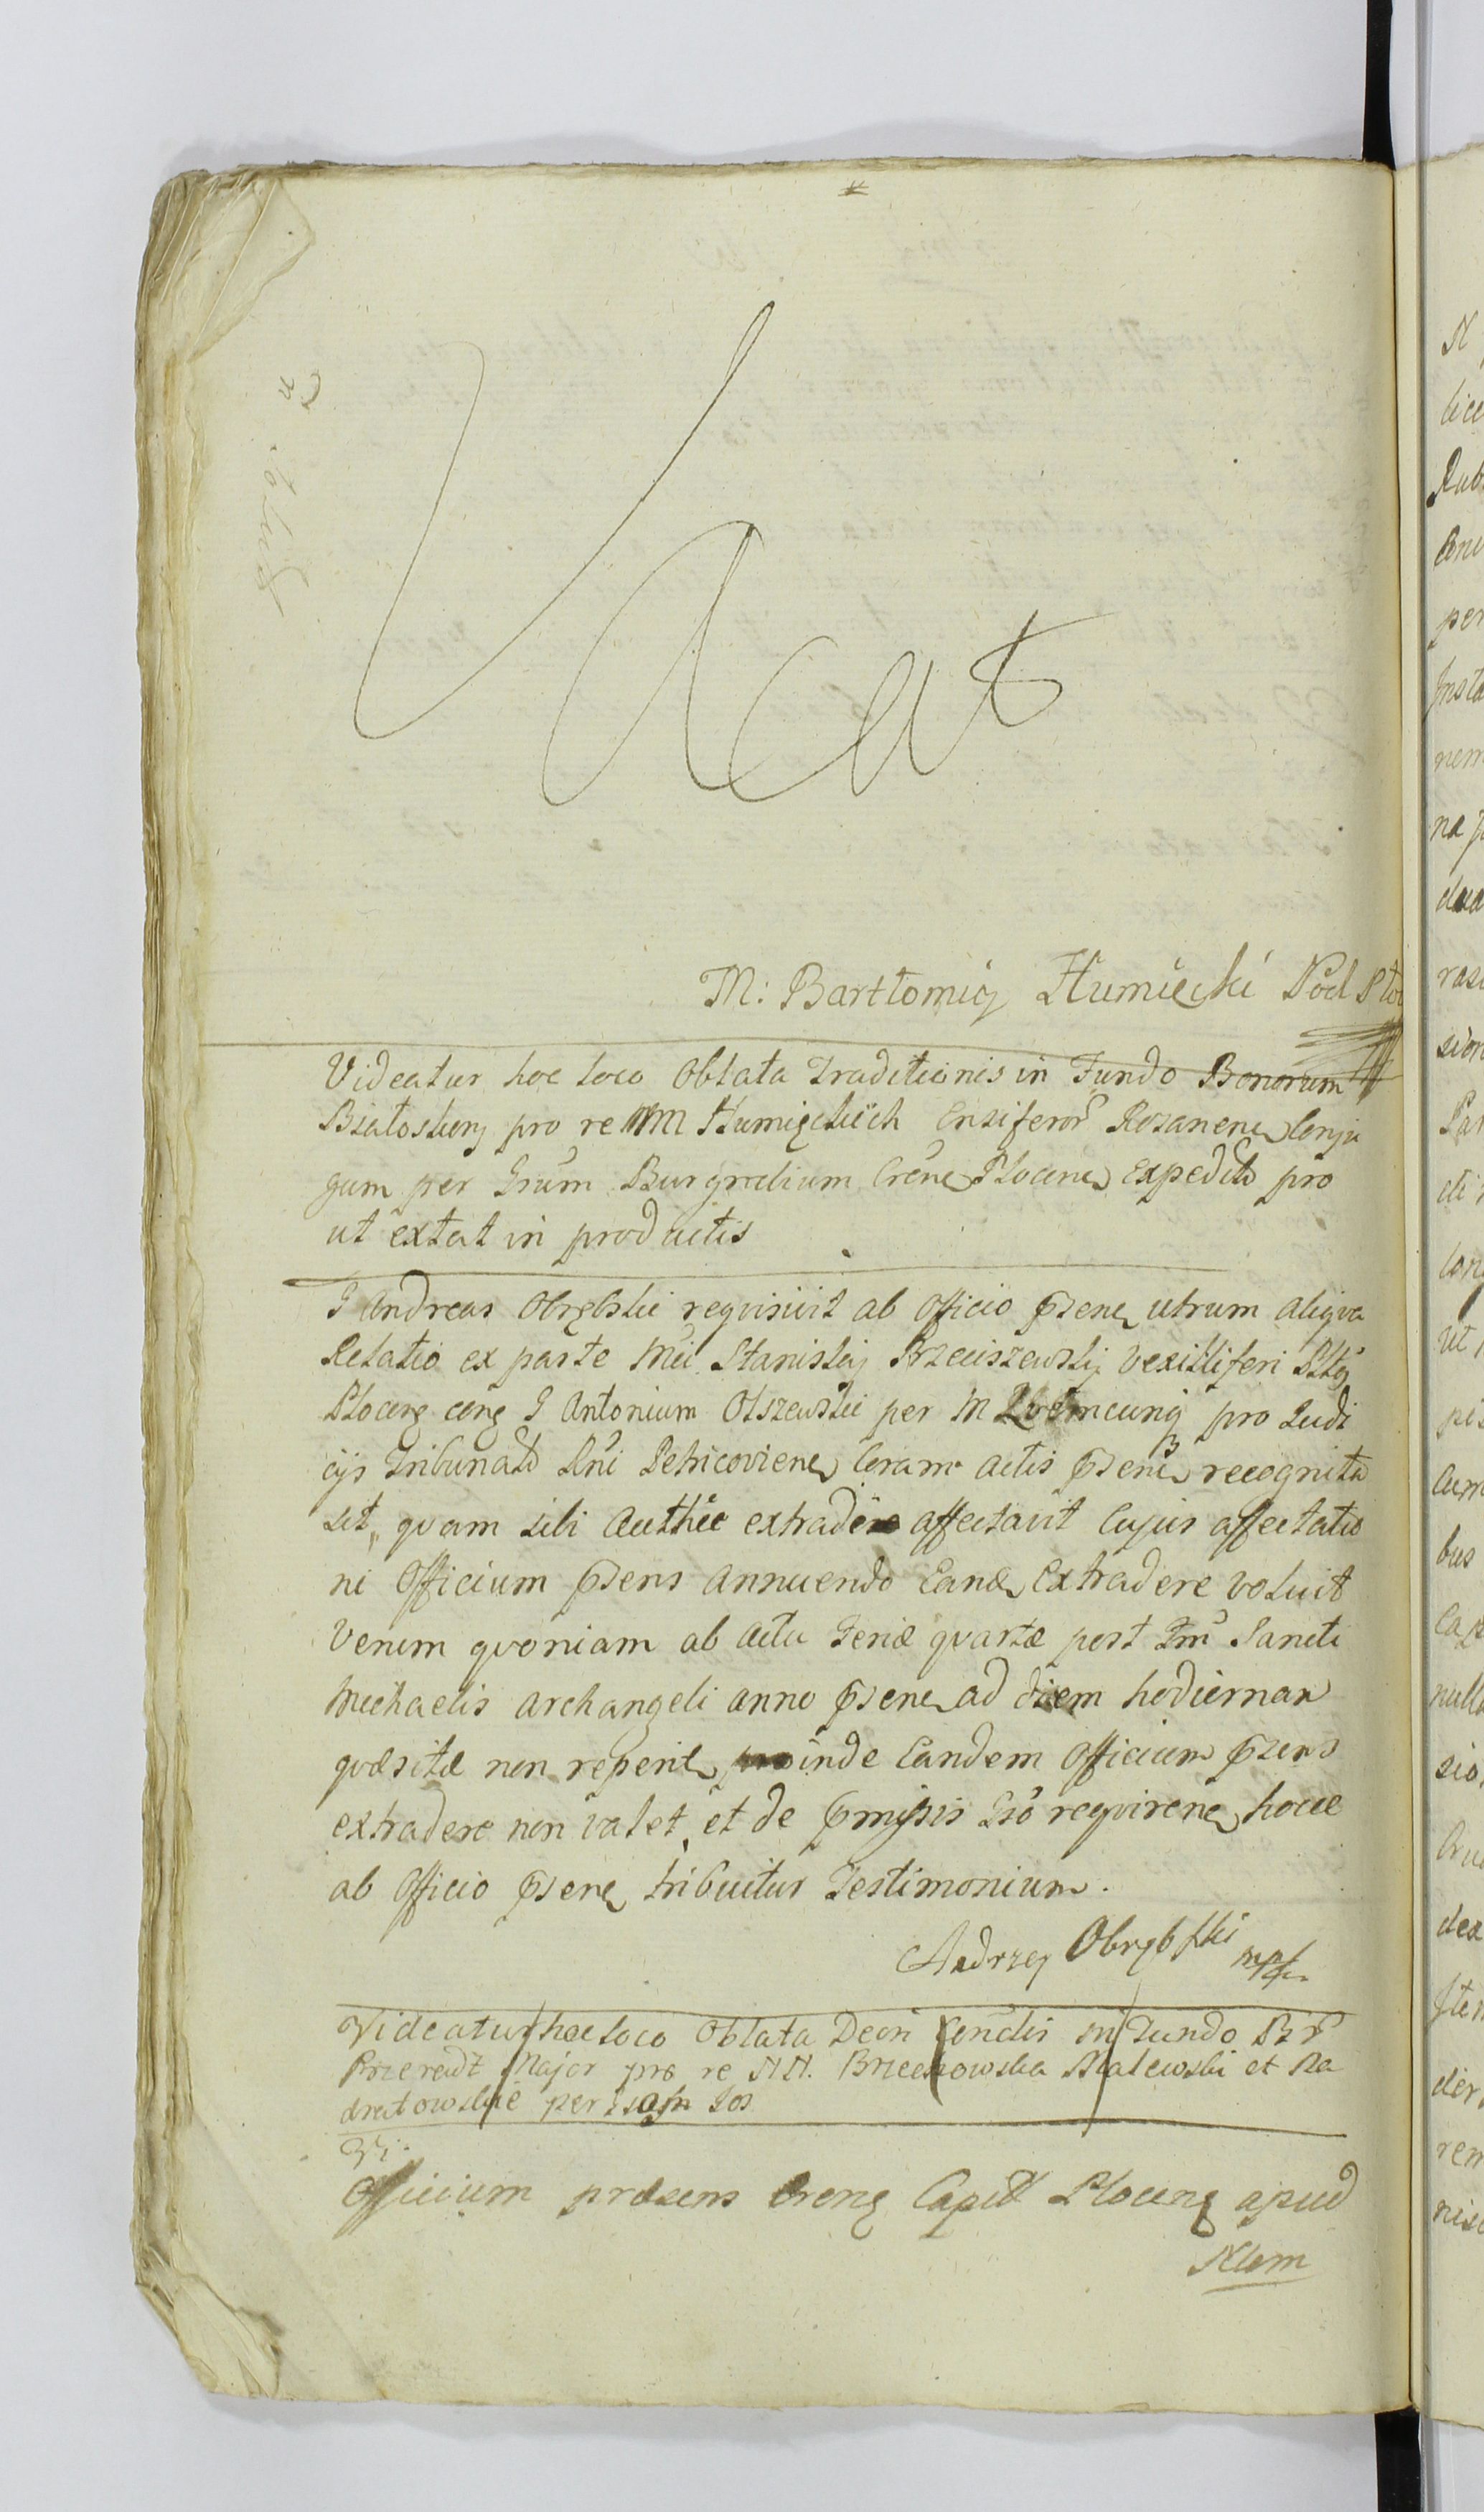 Vacat
M: Bartłomiey Humięcki Pod Pło
Videatur hoc loco Oblata Traditionis in Fundo Bonorum
Białoskury pro re MM Humięckich Ensiferor Rozanen Conju
gum per Grum Burgrabium Crene Plocen Expedit pro
ut extat in productis
G Andreas Obrębski requisivit ab Officio psene utrum aliqva
Relatio ex parte Mci Stanislai Brzeciszewskij Vexilliferi
Plocen cong G Antonium Olszewski per M pro Judi
cijs Tribunal Rni Petricovien Coram Actis psenb recognita
sit, qvam sibi Authce extradere affectavit Cujus affectatio
ni Officium psens annuendo Eand Extradere voluit
Verum qvoniam ab Actu Feriæ qvartæ post Fm Sancti
Michaelis Archangeli anno psene ad diem hodiernam
qvæsitæ non reperit proinde Eandem Officium psens
extradere non valet, et de pmissis Gso reqvirene hocce
ab Officio psene tribuitur Testimonium.
Andrzey Obrębski mp
Videatur hoc loco Oblata Decri in Fundo
Major pro re NN. Malewski et Ra
per
Officium præsens Crene Capit Plocen apud